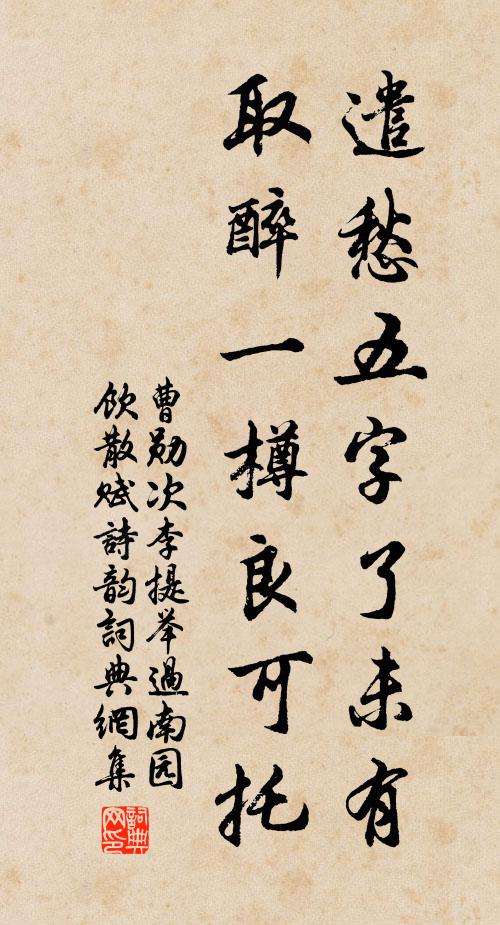 遣愁五字了未有
取醉一樽良可托
曹勋次李提举過南园
飲散赋詩韵詞典網集
詞典
网印